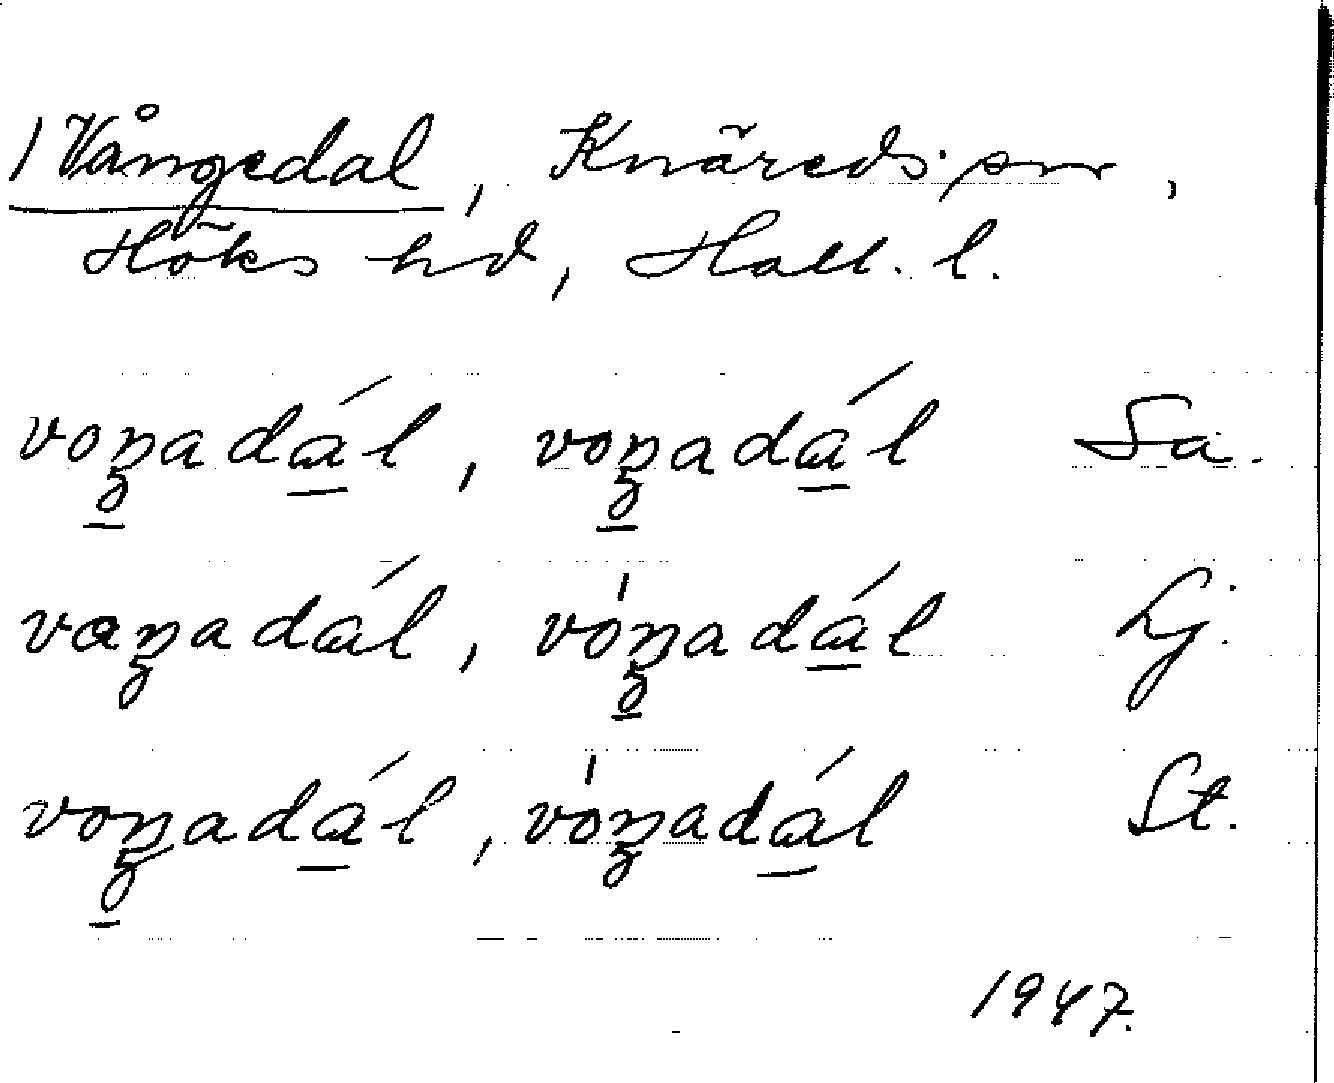 1 Vångedal, Knäreds sn,
Höks hd, Hall. l.
voŋadál, voŋadál Sä.
vaŋadál, vóŋadál Lj.
voŋadál, vóŋadál St.
1947.